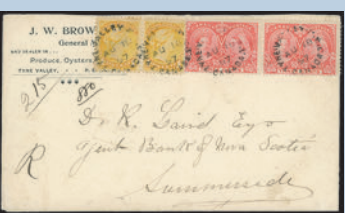 J. W. BROW
General
AND DEALER IN
Produce, Oysters
TYNE VALLEY, P. E.
215
880
Dr. R. Laird Esqr
Agent Bank of Nova Scotia
R
Summerside